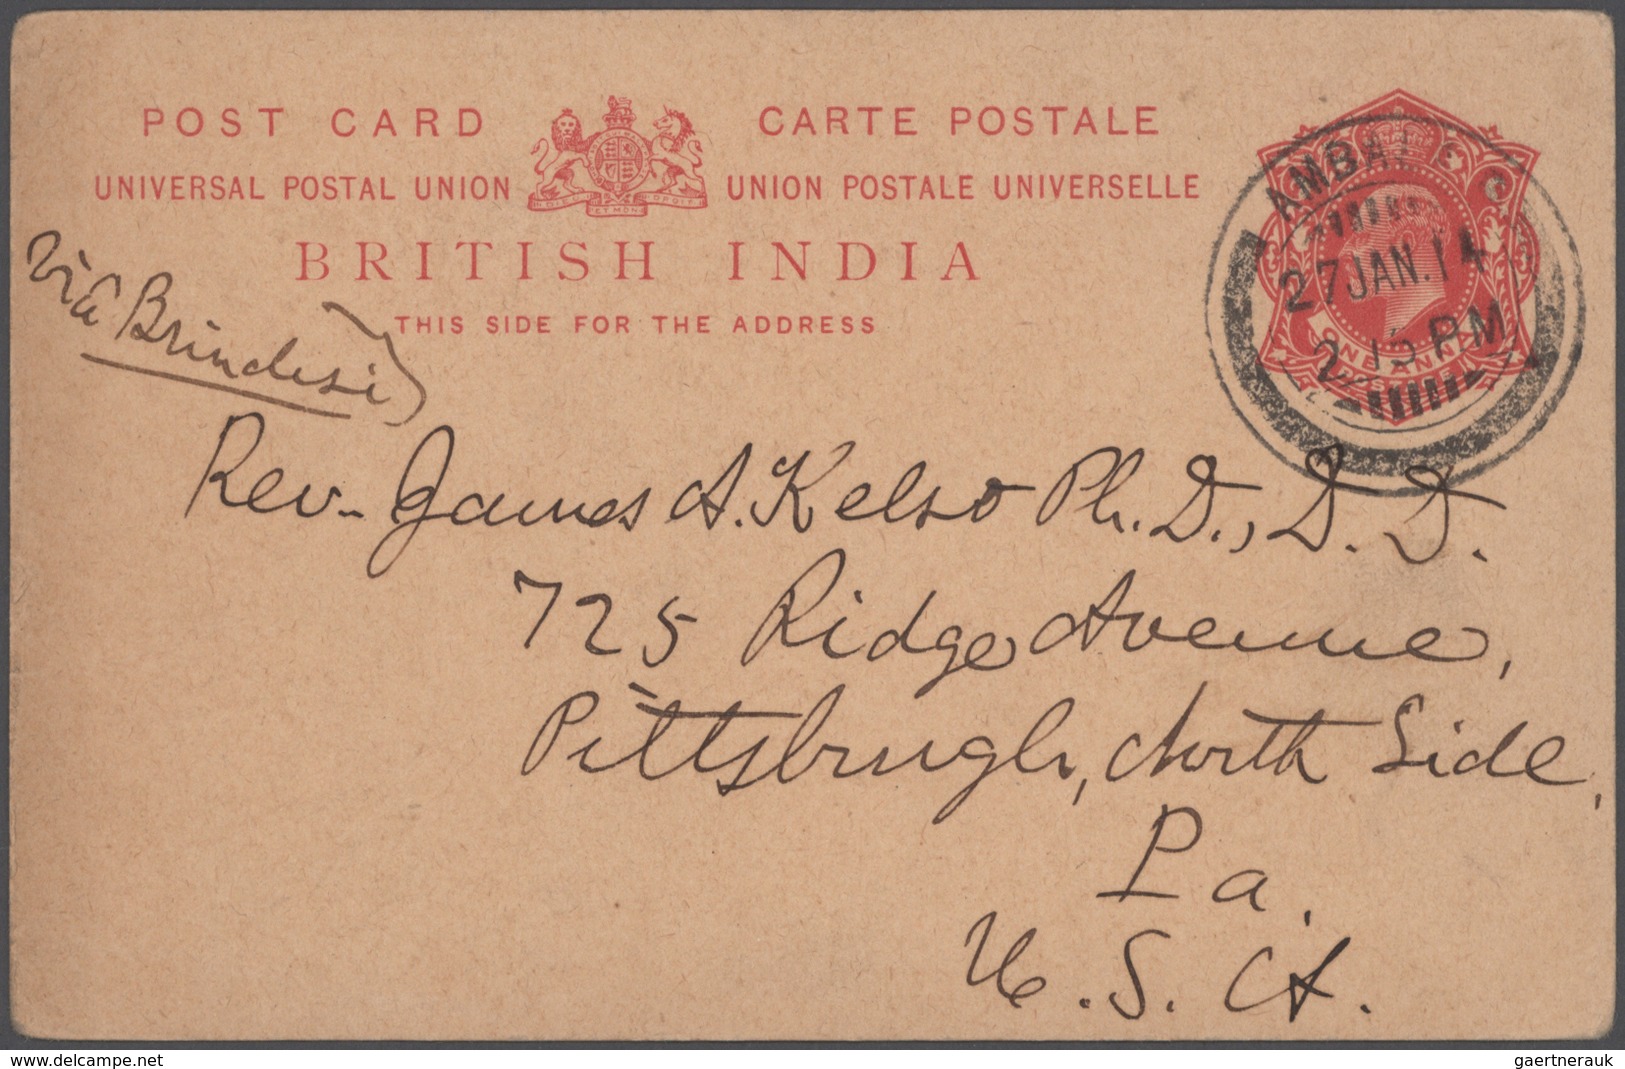 POST CARD CARTE POSTALE
UNIVERSAL POSTAL UNION UNION POSTALE UNIVERSELLE
BRITISH INDIA
THIS SIDE FOR THE ADDRESS
27 JAN. 14
2 15 PM
ONE ANNA
via Brindisi
Rev. James A. Kelso Ph. D., D. D.
725 Ridge Avenue,
Pittsburgh, North Side,
Pa.
U. S. A.
www.delcampe.net gaertnerauk